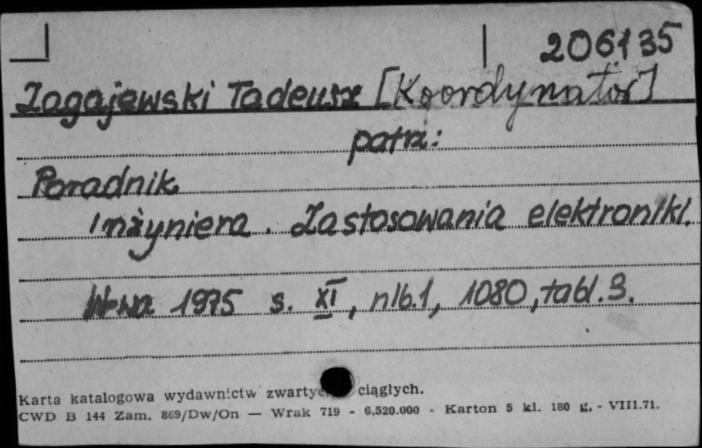 206135
Zagajewski Tadeusz [Koordynator]
patrz:
Poradnik
Inżyniera. Zastosowania elektroniki.
W-wa 1975 s. XI, nlb.1, 1080, tabl. 3.
Karta katalogowa wydawnictw ciągłych.
CWD B 144 Zam. 869/Dw/On — Wrak 719 - 6.520.000 - Karton 5 kl. 180 g. - VIII.71.